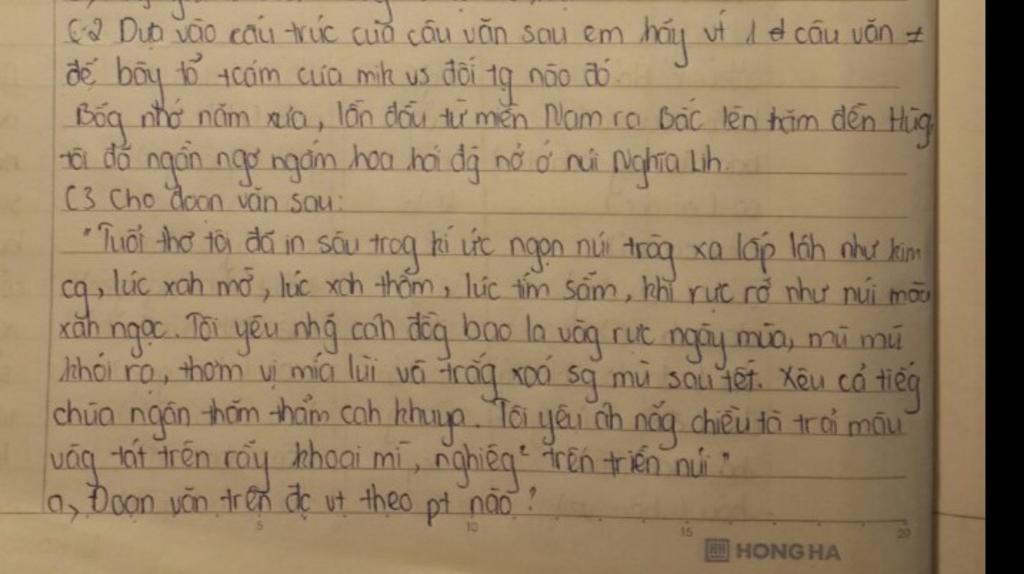 C2 Dựa vào cấu trúc của câu văn sau em hãy vt 1 câu văn ≠
để bày tỏ tcảm của mik vs đối tg nào đó
Bỗg nhớ năm xưa, lần đầu từ miền Nam ra Bắc lên thăm đền Hùg
tôi đã ngẩn ngơ ngắm hoa hải đg nở ở núi Nghĩa Lih.
C3 Cho đoạn văn sau:
"Tuổi thơ tôi đã in sâu trog kí ức ngọn núi trôg xa lấp láh như kim
cg, lúc xah mờ, lúc xah thẫm, lúc tím sẫm, khi rực rỡ như núi màu
xăh ngọc. Tôi yêu nhg cáh đồg bao la vàg rực ngày mùa, mù mù
khói rạ, thơm vị mía lùi và trắg xoá sg mù sau tết. Yêu cả tiếg
chùa ngân thăm thẳm cah khuya. Tôi yêu áh nắg chiều tà trải màu
vàg tắt trên rẫy khoai mì, nghiêg² trên triền núi"
a, Đoạn văn trên đc vt theo pt nào?
5 10 15 20
HONG HA